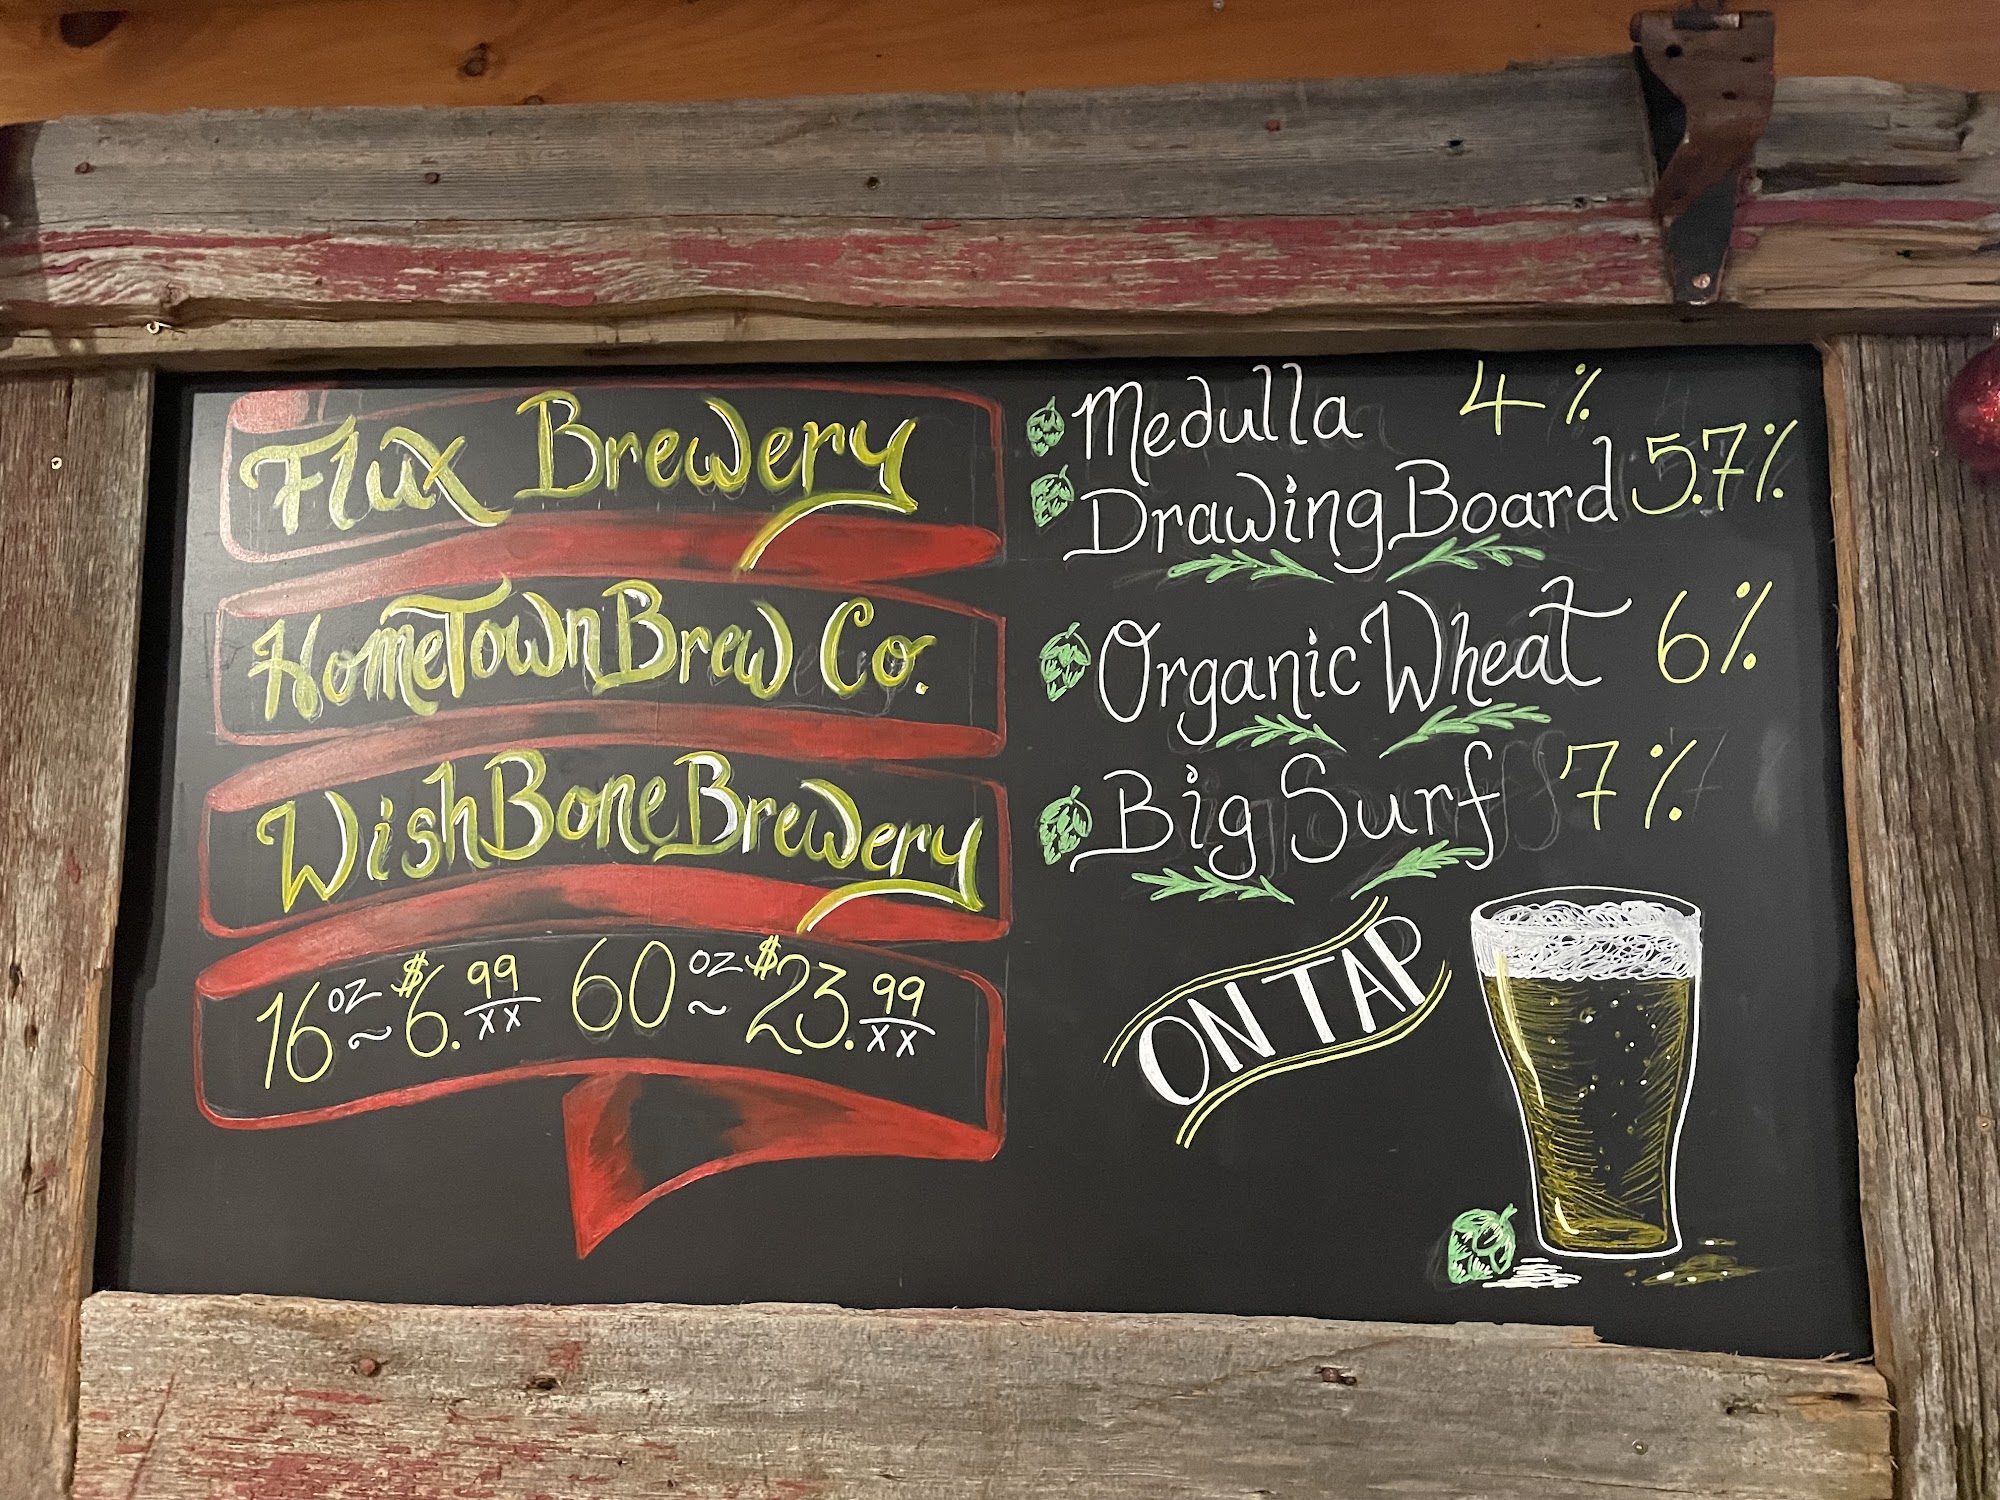 Flux Brewery
HomeTown Brew Co.
WishBone Brewery
16 oz ~ $6.99/xx 60 oz ~ $23.99/xx
Medulla 4%
Drawing Board 5.7%
Organic Wheat 6%
Big Surf 7%
ON TAP